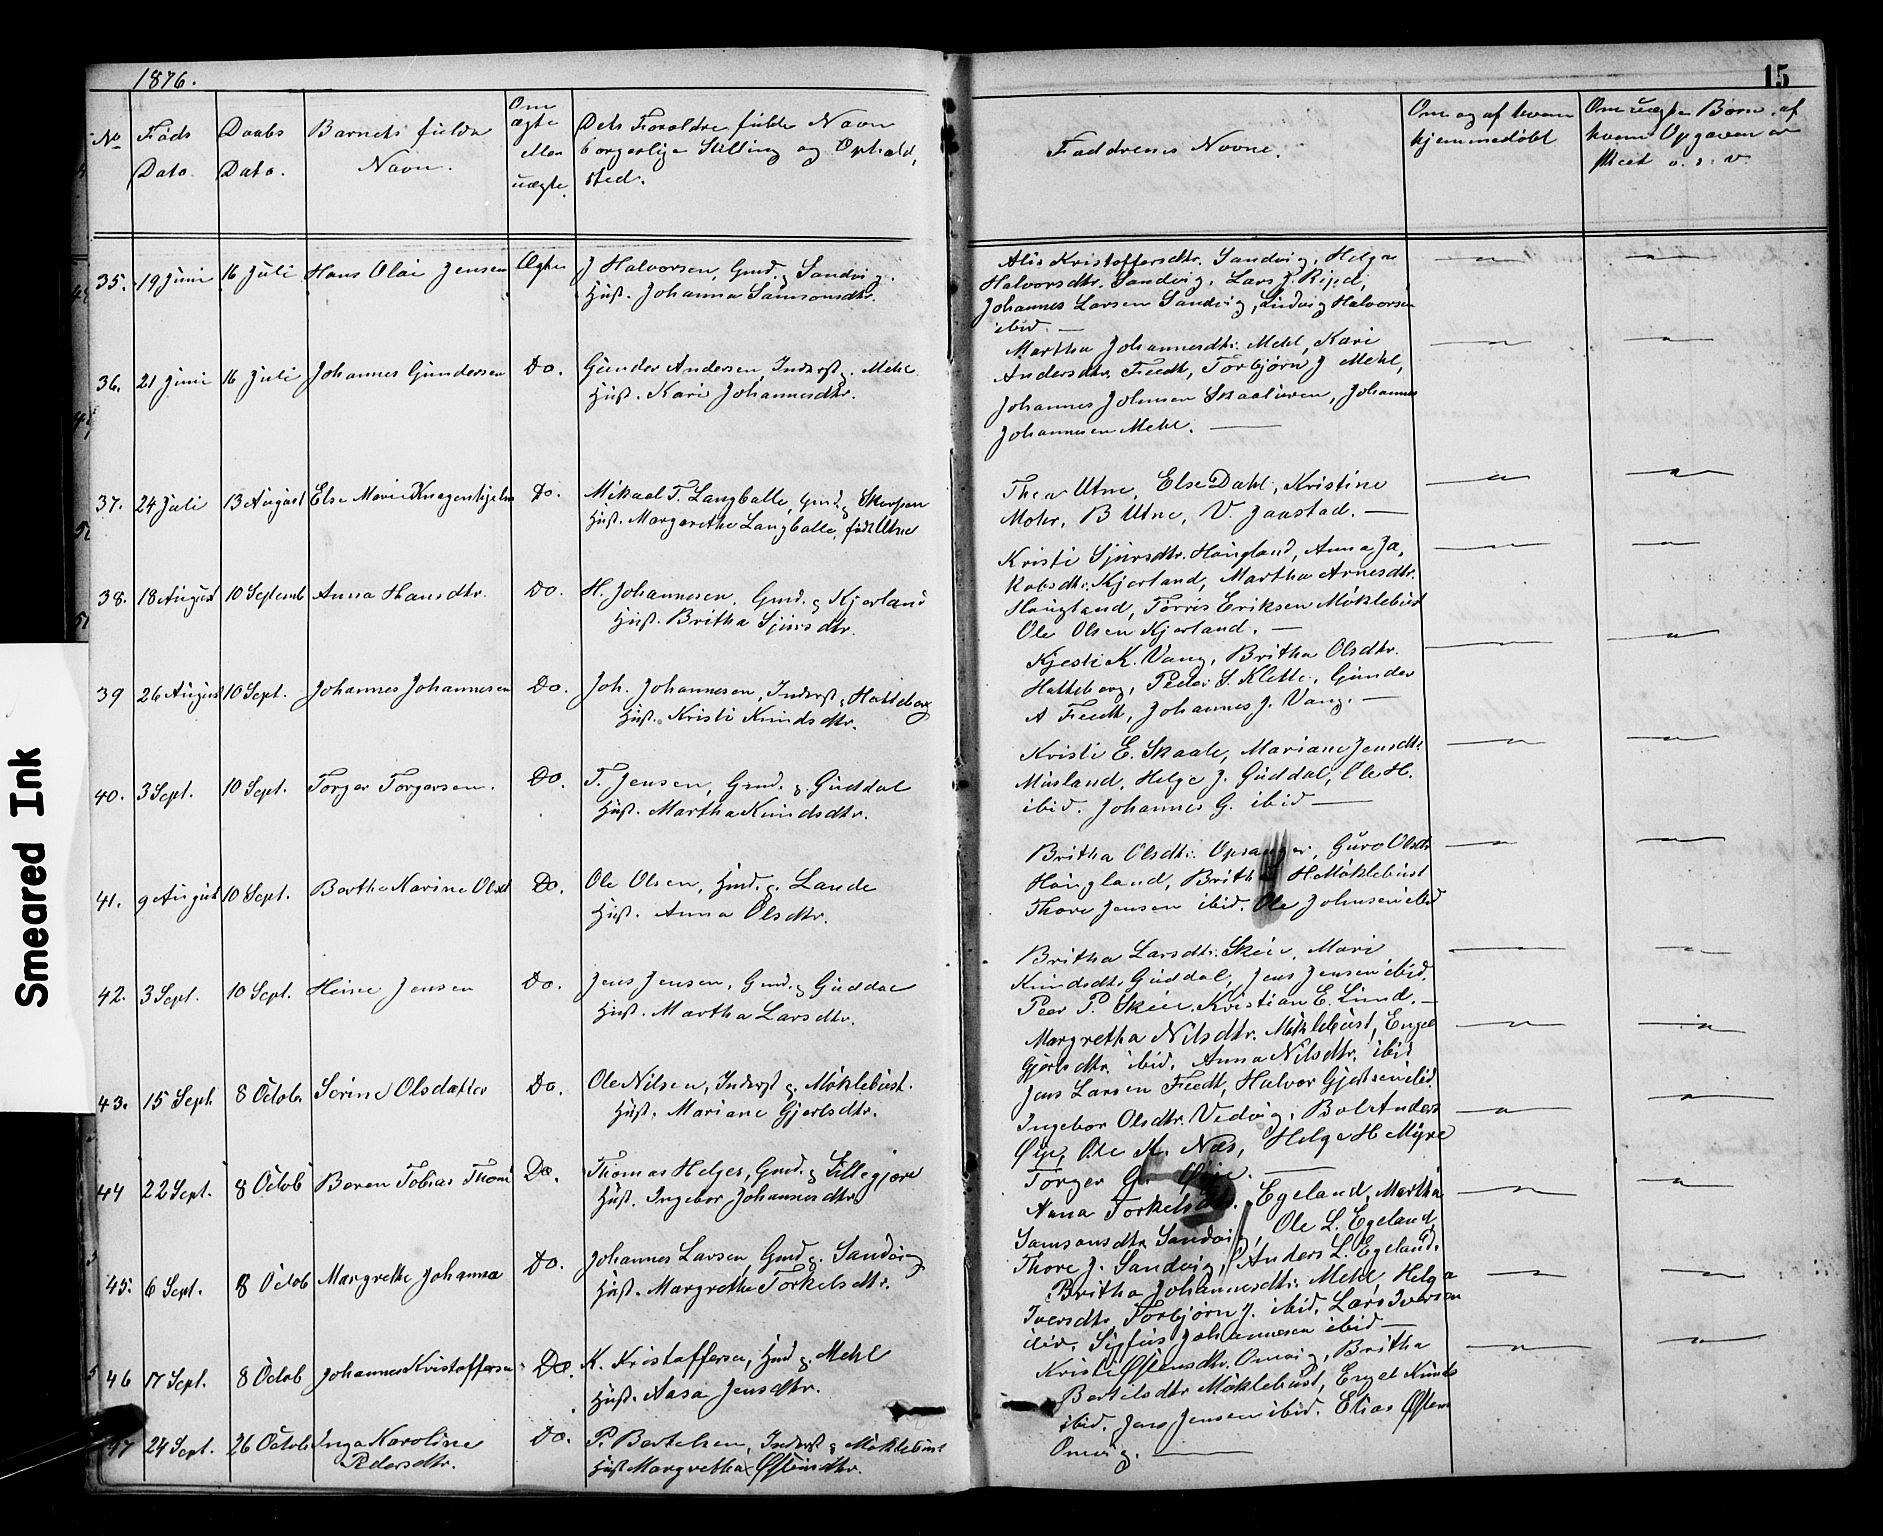 1876.
15
No
Föds Dato.
Daabs Dato.
Barnets fulde Navn.
Om ægte eller uægte.
Dets Forældre fulde Navn borgerlige Stilling og Opholdssted.
Faddrenes Navne.
Om og af hvem hjemmedøbt
Om uægte Børn, af hvem Opgaven er skeet o. s. v.
35. 19 Juni 16 Juli Hans Olai Jensen Ægte J Halvorsen, Gmd. g. Sandvig.
Hust. Johanna Samsonsdtr.
Alis Kristoffersdtr. Sandvig, Helga
Halvorsdtr. Sandvig, Lars J.
Johannes Larsen Sandvig, Ludvig Halvorsen
ibid. —
36. 21 Juni 16 Juli Johannes Gundersen Do. Gunder Andersen, Inderst g. Mehl.
Hust. Kari Johannesdtr.
Martha Johannesdtr. Mehl, Kari
Andersdtr. Treedt, Torbjørn J Mehl,
Johannes Johnsen Skaaluren, Johannes
Johannesen Mehl. —
37. 24 Juli 13 August Else Marie Knagenhjelm Do. Mikael T. Langballe, Gmd. g Skorpen
Hust. Margarethe Langballe, född Utne
Thea Utne, Else Dahl, Kristine
Mohr, B Utne, V. Jaastad. —
38. 18 August 10 Septemb Anna Hansdtr. Do. H. Johannesen, Gmd. g Kjerland
Hust. Britha Sjursdtr.
Kristi Sjursdtr. Haugland, Anna Ja,
kobsdtr. Kjerland, Martha Arnesdtr.
Haugland, Torris Eriksen Møklebust
Ole Olsen Kjerland. —
39 26 August 10 Sept. Johannes Johannesen Do. Joh. Johannesen, Inderst g Hatteberg
Hust. Kristi Knudsdtr.
Kjesti K. Vang, Britha Olsdtr.
Hatteberg, Peder S. Klette, Gunder
A Treedt, Johannes J. Vang. —
40. 3 Sept. 10 Sept. Torger Torgersen. Do. T. Jensen, Gmd. g. Guddal
Hust. Martha Knudsdtr.
Kristi E. Skaale, Mariane Jensdtr
Musland, Helge J. Guddal, Ole H.
ibid. Johannes G. ibid —
41. 9 August 10 Sept. Berthe Karine Olsd Do. Ole Olsen, Hmd. g. Lande
Hust. Anna Olsdtr.
Britha Olsdtr. Opsanger, Guro Olsdtr
Haugland, Britha H Møklebust
Thore Jensen ibid. Ole Johnsen ibid
42. 3 Sept. 10 Sept. Heine Jensen Do. Jens Jensen, Gmd. g Guddal
Hust. Martha Larsdtr.
Britha Larsdtr. Skeie, Mari
Knudsdtr. Guddal, Jens Jensen ibid.
Peer P. Skeie. Kristian E. Lund. —
43. 15 Sept. 8 Octob. Serine Olsdatter Do. Ole Nilsen, Inderst g. Møklebust.
Hust. Mariane Gjertsdtr.
Margretha Nilsdtr. Møklebust, Engel
Gjertsdtr. ibid, Anna Nilsdtr. ibid
Jens Larsen Treedt, Halvor Gjertsen ibid.
44 22 Sept. 8 Octob Beren Tobias Thom Do. Thomas Helges, Gmd. g Lillegjære
Hust. Ingebor Johannesdtr.
Ingebor Olsdtr. Vedvig, Bol Anders
Øye, Ole K. Næs, Helge H Myre
Torger G. Øye. —
45. 6 Sept. 8 Octob Margrethe Johanna Do. Johannes Larsen, Gmd. g. Sandvig
Hust. Margrethe Torkelsdtr.
Anna Torkelsdtr. Egeland, Martha
Samsonsdtr Sandvig, Ole L. Egeland,
Thore J. Sandvig, Anders L. Egeland.
46 17 Sept. 8 Octob Johannes Kristoffersen Do. K. Kristoffersen, Hmd g. Mehl
Hust. Aasa Jensdtr.
Britha Johannesdtr. Mehl, Helga
Iversdtr Torbjørn J. ibid, Lars Iversen
ibid, Sjfus Johannesen ibid —
47 24 Sept. 26 Octob Inga Karoline Do. P. Bertelsen, Inderst g Møklebust
Pedersdtr.
Hust Margretha Østensdtr.
Kristi Østensdtr. Omvig, Britha
Bertilsdtr Møklebust, Engel Knuds
ibid. Jens Jensen ibid. Elias Østen
Omvig. —
Smeared Ink